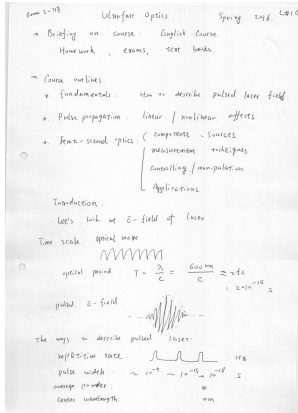 Room 2-717 Ultrafast Optics Spring 2016 L#1
~ Briefing on course : English Course
Homework , exams, text books.
~ Course outlines:
x. fundamentals : How to describe pulsed laser field
o. Pulse propagation : linear / nonlinear effects
o. Femto-second optics : components . Sources
measurement techniques
controlling / manipulation
Applications
Introduction :
Let's look at E-field of laser
Time scale optical wave
optical period : T = λ/c = 600 nm/c ≈ 2 fs
= 2×10⁻¹⁵ s
pulsed E-field :
The ways to describe pulsed laser :
repetition rate : Hz
pulse width : ~ 10⁻⁹ ~ 10⁻¹⁵ → 10⁻¹⁸ s
average power : w
center wavelength : nm